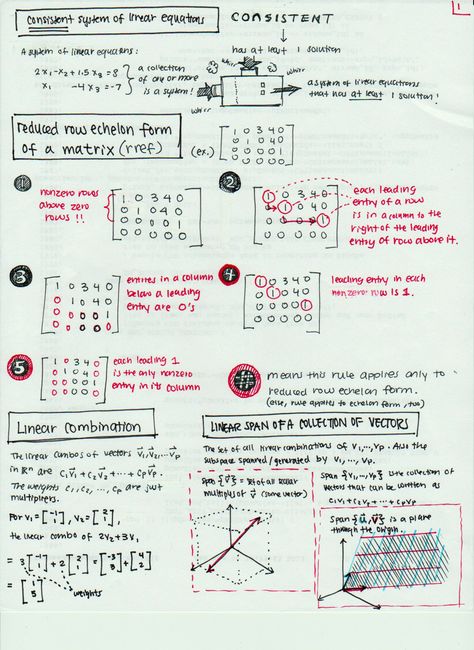 1
consistent system of linear equations
CONSISTENT
has at least 1 solution
A system of linear equations:
2x₁-x₂+1.5x₃=8
x₁ -4x₃=-7
a collection
of one or more
is a system!
whirr
whirr
whirr
a system of linear equations
that has at least 1 solution!
reduced row echelon form
of a matrix (rref)
(ex.)
1 0 3 4 0
0 1 0 4 0
0 0 0 0 1
0 0 0 0 0
1
nonzero rows
above zero
rows!!
1 0 3 4 0
0 1 0 4 0
0 0 0 0 1
0 0 0 0 0
2
1 0 3 4 0
0 1 0 4 0
0 0 0 0 1
0 0 0 0 0
each leading
entry of a row
is in a column to the
right of the leading
entry of row above it.
3
1 0 3 4 0
0 1 0 4 0
0 0 0 0 1
0 0 0 0 0
entries in a column
below a leading
entry are 0's
4
1 0 3 4 0
0 1 0 4 0
0 0 0 0 1
0 0 0 0 0
leading entry in each
nonzero row is 1.
5
1 0 3 4 0
0 1 0 4 0
0 0 0 0 1
0 0 0 0 0
each leading 1
is the only nonzero
entry in its column
#
means this rule applies only to
reduced row echelon form.
(else, rule applies to echelon form, too)
Linear Combination
The linear combos of vectors v₁, v₂,..., vₚ
in Rⁿ are c₁v₁+c₂v₂+...+cₚvₚ
The weights c₁, c₂, ..., cₚ are just
multipliers.
For v₁ = [-1 1], v₂ = [2 1],
the linear combo of 2v₂+3v₁
= 3[-1 1]+2[2 1]=[-3 3]+[4 2]
= [1 5]
weights
LINEAR SPAN OF A COLLECTION OF VECTORS
The set of all linear combinations of v₁,...,vₚ. Also the
subspace spanned/generated by v₁,...,vₚ.
span {v} = set of all scalar
multiples of v (some vector)
span {v₁,...,vₚ} is the collection of
vectors that can be written as
c₁v₁+c₂v₂+...+cₚvₚ
span {u,v} is a plane
through the origin.